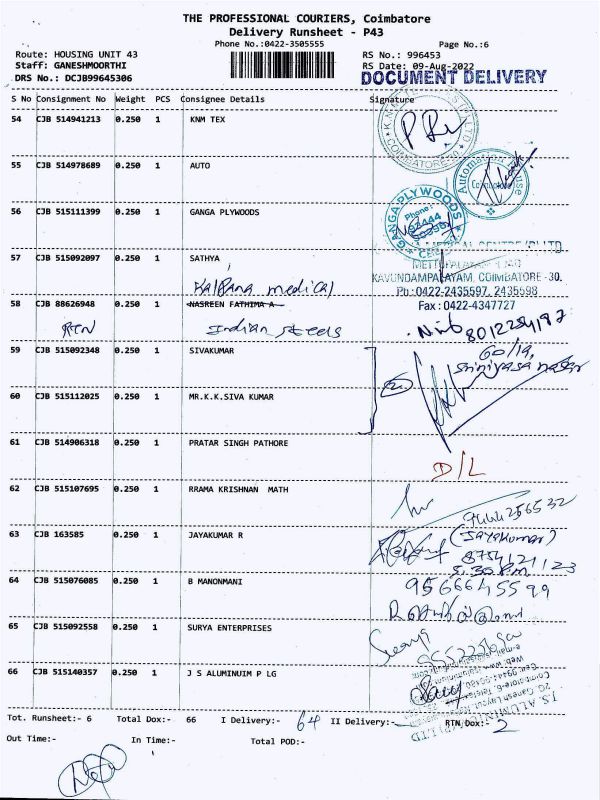 THE PROFESSIONAL COURIERS, Coimbatore
Delivery Runsheet - P43
Phone No.:0422-3505555
Page No.:6
Route: HOUSING UNIT 43
RS No.: 996453
Staff: GANESHMOORTHI
RS Date: 09-Aug-2022
DRS No.: DCJB99645306
DOCUMENT DELIVERY
S No Consignment No Weight PCS Consignee Details Signature
54 CJB 514941213 0.250 1 KNM TEX
COIMBATORE
55 CJB 514978689 0.250 1 AUTO
Automation House
Coimbatore
56 CJB 515111399 0.250 1 GANGA PLYWOODS
GANGA PLYWOODS
Phone:
57 CJB 515092097 0.250 1 SATHYA
MEDICAL CENTRE (P) LTD
METTUPALAYAM ROAD
KAVUNDAMPALAYAM, COIMBATORE - 30.
Kalpana medical
Ph : 0422-2435597, 2435598
58 CJB 88626948 0.250 1 NASREEN FATHIMA A
Fax : 0422-4347727
RTN Indian steels
8012254187
59 CJB 515092348 0.250 1 SIVAKUMAR
60/19,
Srinivasa nagar
60 CJB 515112025 0.250 1 MR.K.K.SIVA KUMAR
61 CJB 514906318 0.250 1 PRATAR SINGH PATHORE
D/L
62 CJB 515107695 0.250 1 RRAMA KRISHNAN MATH
9444256532
63 CJB 163585 0.250 1 JAYAKUMAR R
(Jayakumar)
8754121123
5.30 P.M
64 CJB 515076085 0.250 1 B MANONMANI
9566645599
65 CJB 515092558 0.250 1 SURYA ENTERPRISES
Surya
66 CJB 515140357 0.250 1 J S ALUMINUIM P LG
Tot. Runsheet:- 6 Total Dox:- 66 I Delivery:- 64 II Delivery:- RTN Dox:- 2
Out Time:- In Time:- Total POD:-